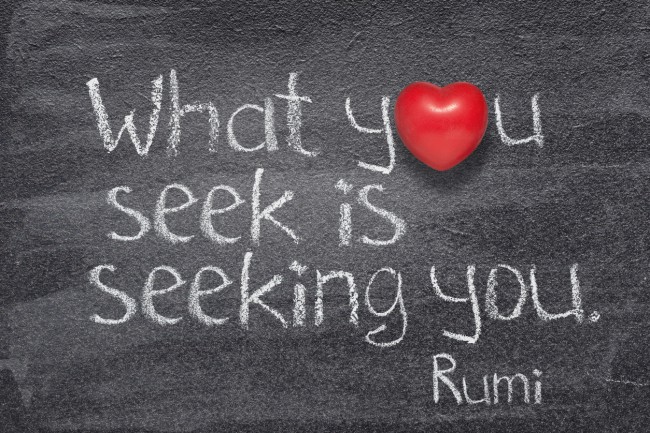 What y❤u
seek is
seeking you.
Rumi